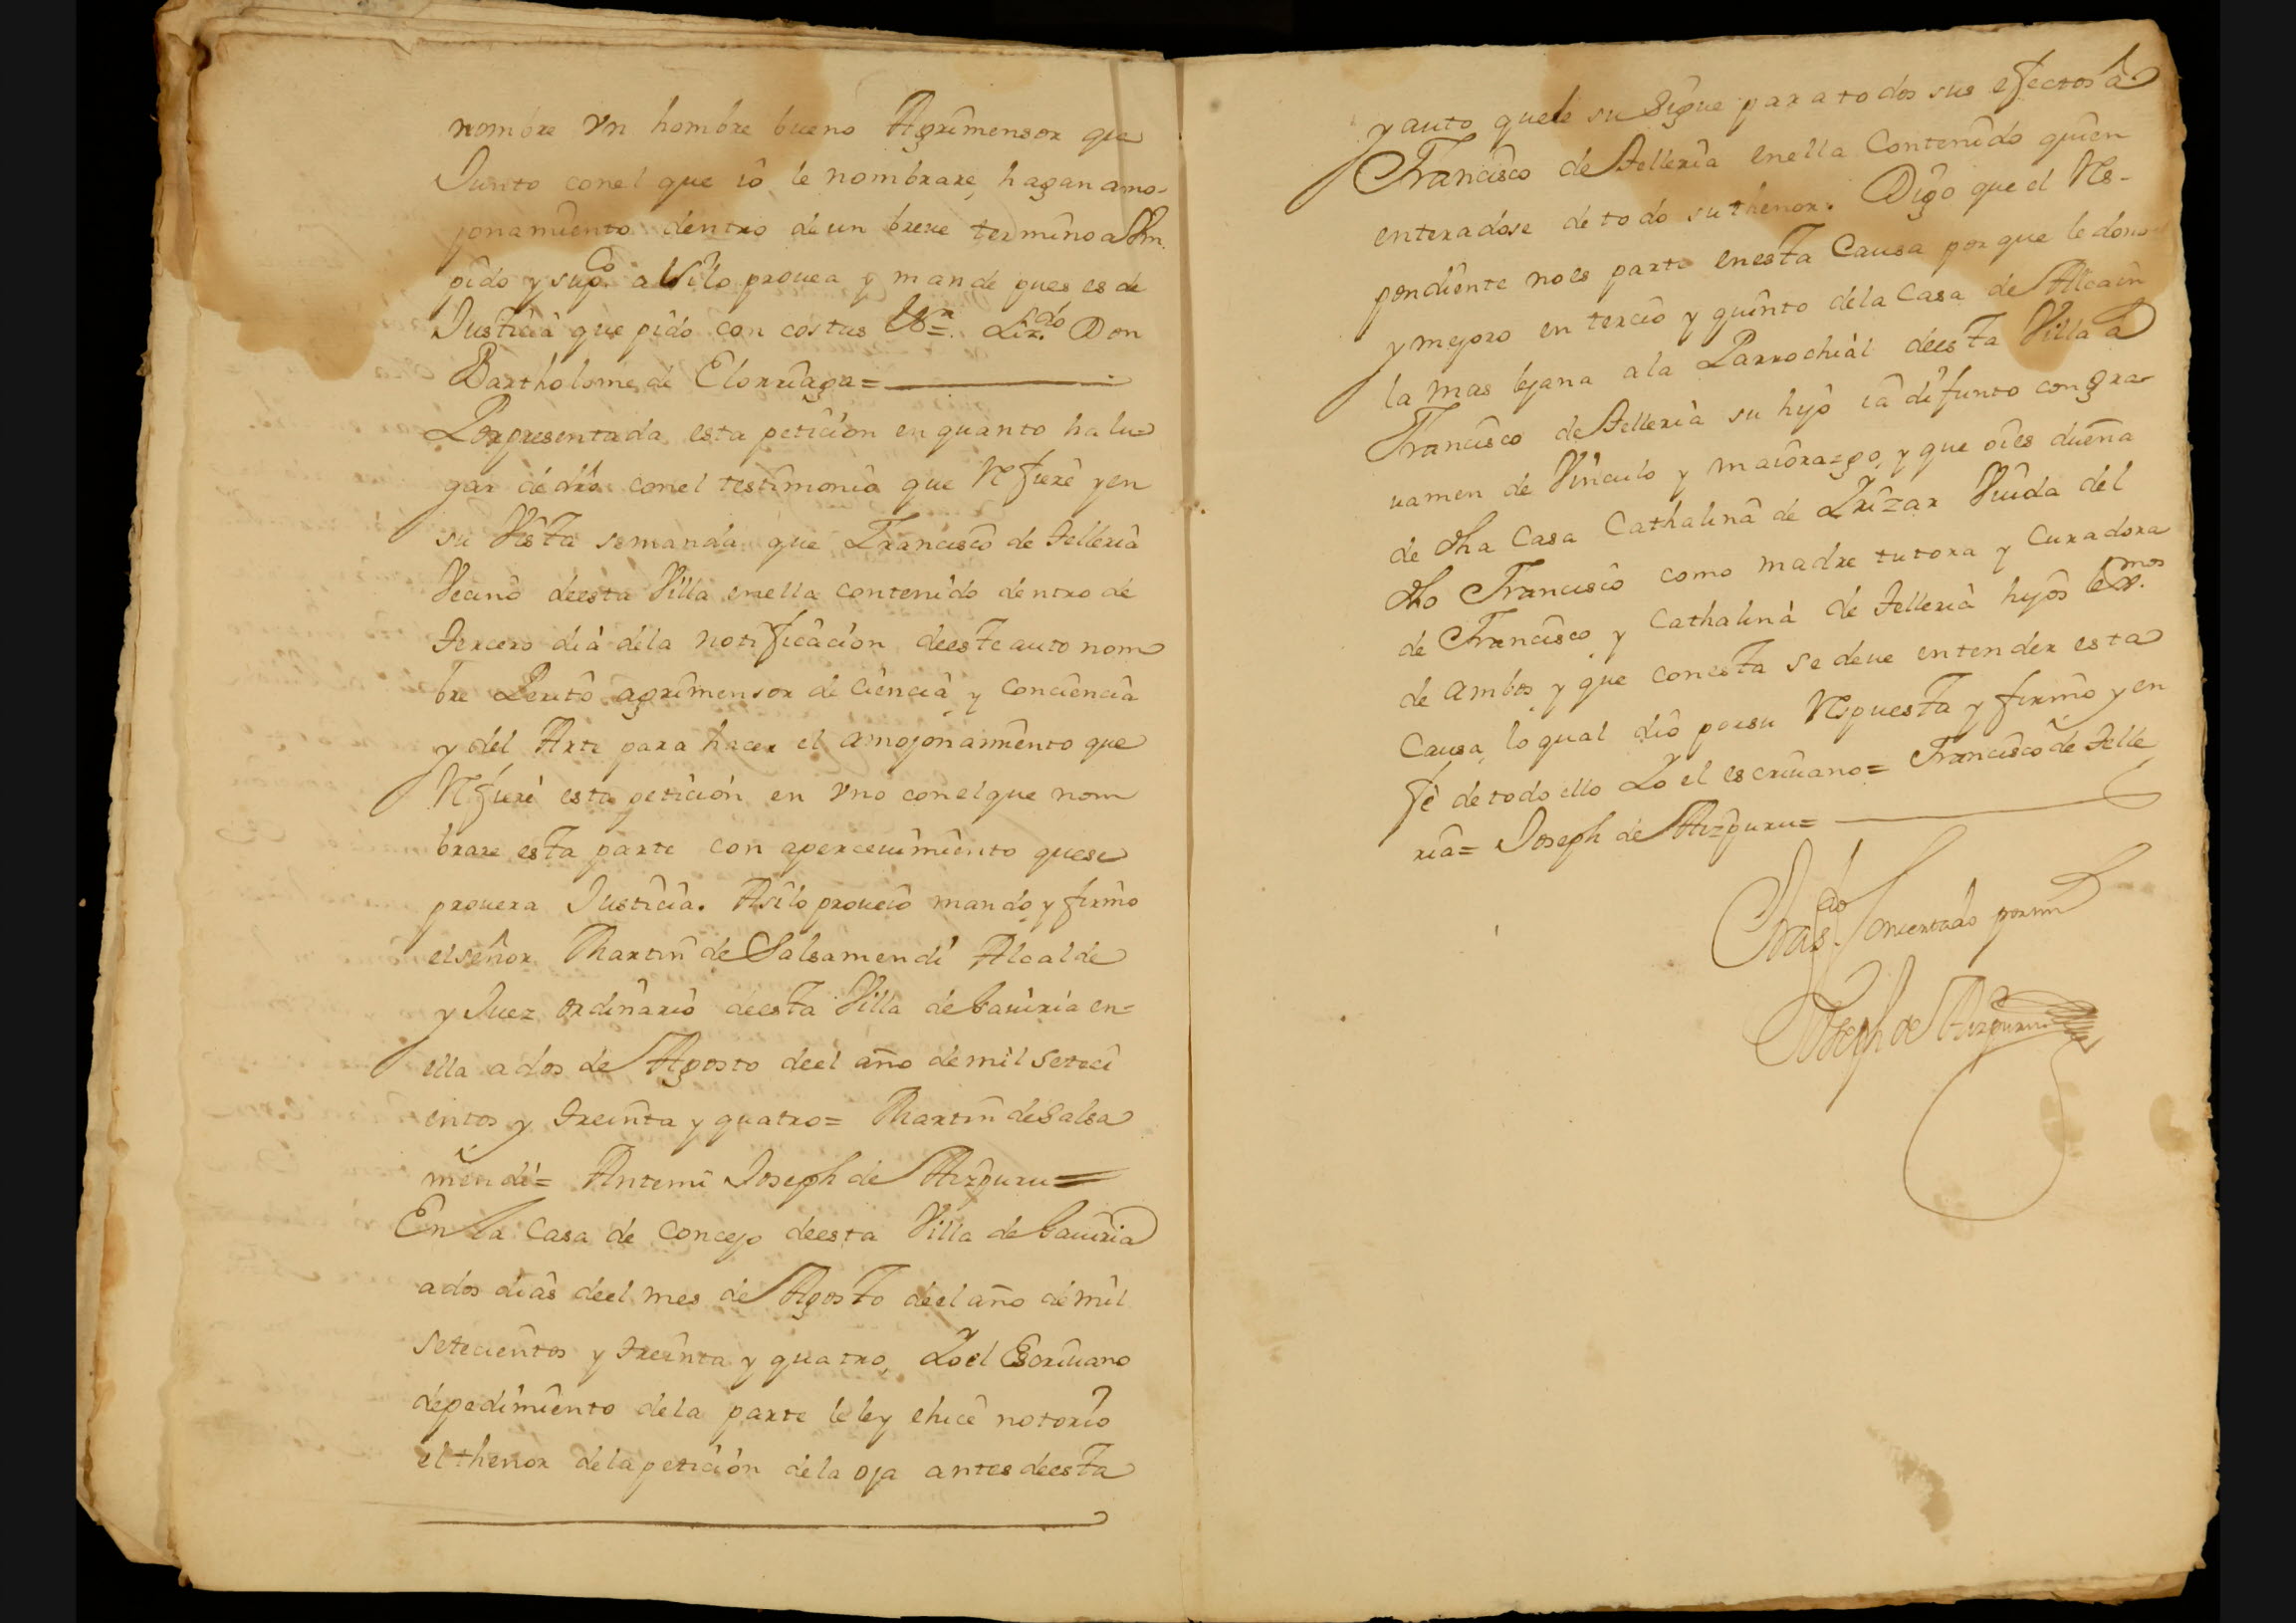 nombre vn hombre bueno Agrimensor que
Junto conel que io le nombrare, hagan amo-
jonamiento dentro de un breve termino a Vm.
pido y supco. asilo prouea y mande pues es de
Justicia que pido con costas Va. Lizdo. Don
Bartholome de Elorriaga=
Por presentada esta peticion en quanto ha lu-
gar de dro. conel testimonio que Refiere y en
su Vista se manda que Francisco de Telleria
Vecino deesta Villa enella contenido dentro de
Tercero dia dela notificacion deeste auto nom
bre Perito agrimensor de ciencia y conciencia
y del Arte para hacer el amojonamiento que
Refiere esta peticion en vno conelque nom
brare esta parte con aperceuimiento quese
prouera Justicia. Asilo proueio mando y firmo
elseñor Martin de Salsamendi Alcalde
y Juez ordinario deesta Villa de Gauiria en-
ella a dos de Agosto deel año de mil seteci
entos y Treinta y quatro= Martin deSalsa
mendi= Antemi Joseph de Aizpuru=
En la Casa de Concejo deesta Villa de Gauiria
ados dias deel mes de Agosto deel año de mil
setecientos y treinta y quatro, Yo el Escriuano
depedimiento dela parte le ley ehice notorio
elthenor dela peticion dela oja antes deesta
y auto quele su Sigue para todos sus efectos â
Francisco de Telleria enella Contenido quien
enteradose de todo su thenor. Digo que el Res-
pondiente noes parte enesta Causa por que le dono
y mejoro en tercio y quinto dela Casa de Alcain
la mas lejana ala Parrochial deesta Villa a
Francisco de Telleria su hijo ia difunto con gra-
uamen de Vinculo y maiorazgo, y que oies dueña
de dha Casa Cathalina de Yrizar Viuda del
dho Francisco como madre tutora y Curadora
de Francisco y Cathalina de Telleria hijos lexmos.
de ambos y que conesta se deue entender esta
Causa, lo qual dio porsu Respuesta y firmo y en
fe de todo ello Yo el escriuano= Francisco de Telle
ria= Joseph de Aizpuru=
Trasdo. Concertado por mi
Joseph de Aizpuru